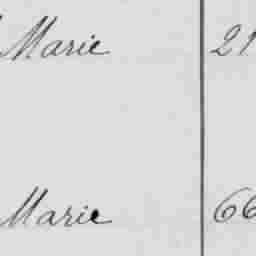 Marie 21
Marie 66